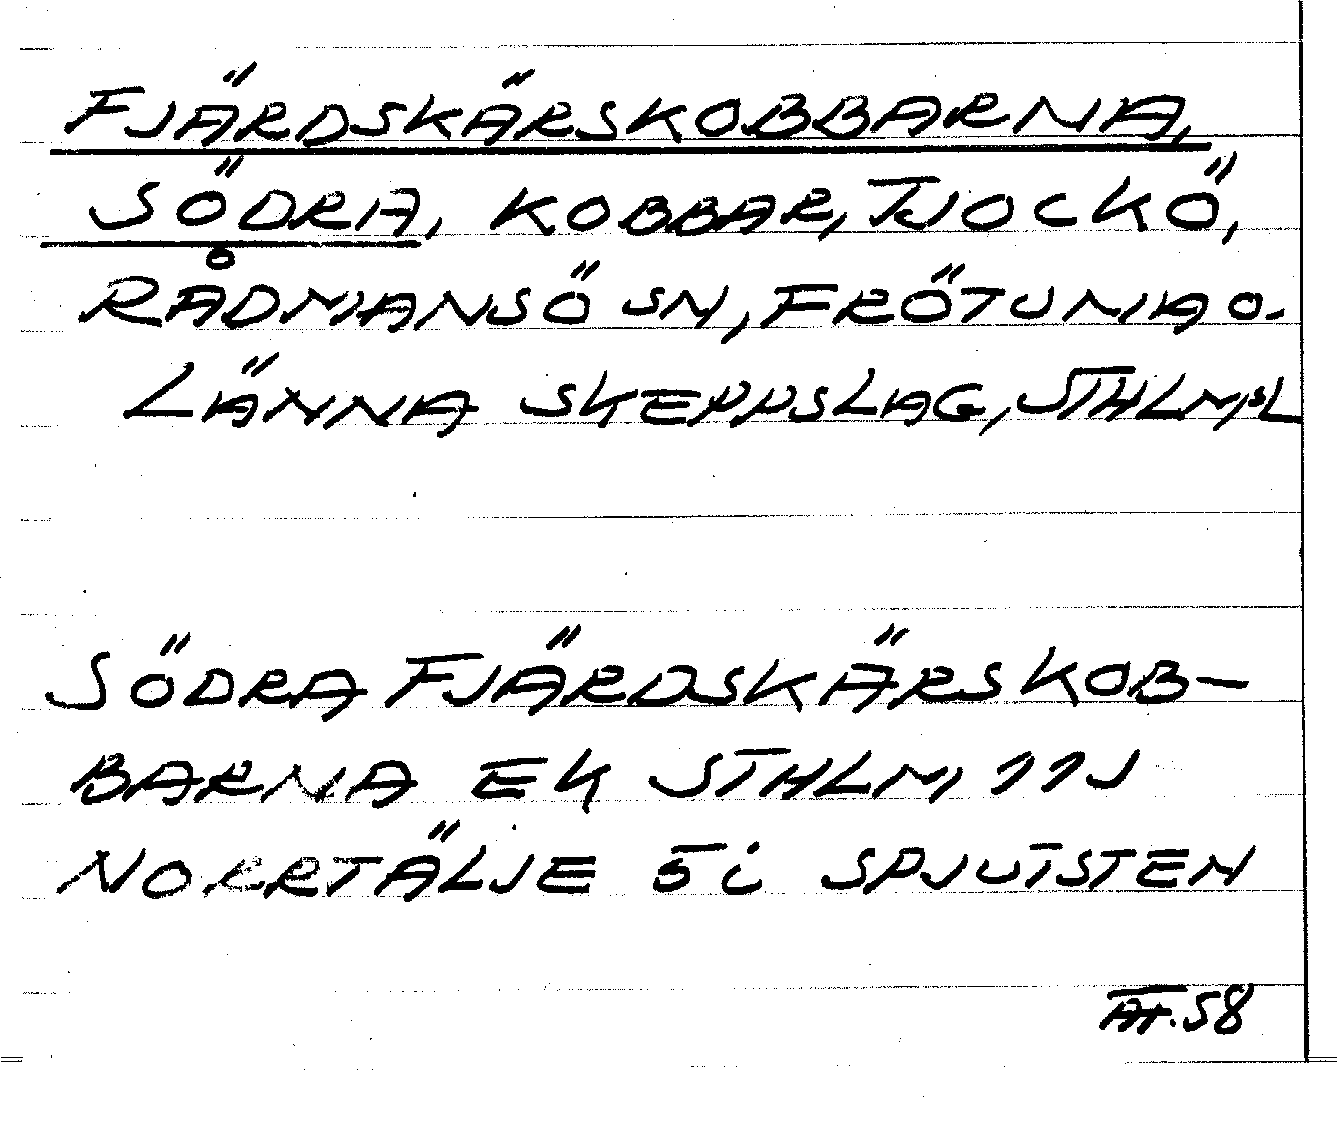 FJÄRDSKÄRSKOBBARNA,
SÖDRA, KOBBAR, TJOCKÖ,
RÅDMANSÖ SN, FRÖTUNA O.
LÄNNA SKEPPSLAG, STHLMSL
SÖDRA FJÄRDSKÄRSKOB-
BARNA EK STHLM 11J
NORRTÄLJE 5i SPJUTSTEN
AT.58